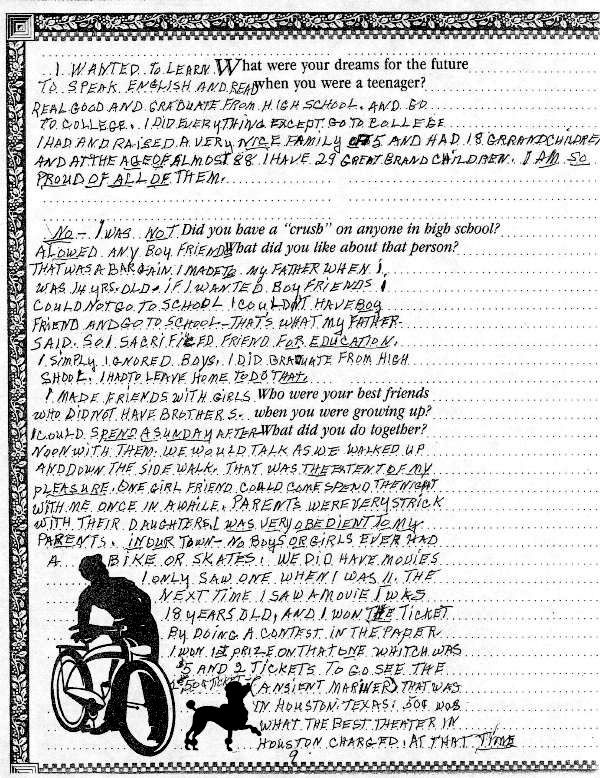 I WANTED TO LEARN What were your dreams for the future
TO SPEAK ENGLISH AND READ when you were a teenager?
REAL GOOD AND GRADUATE FROM HIGH SCHOOL. AND GO
TO COLLEGE. I DID EVERYTHING EXCEPT GO TO COLLEGE
I HAD AND RAISED A VERY NICE FAMILY OF 5 AND HAD 18 GRRANDCHILDREN
AND AT THE AGE OF ALMOST 88 I HAVE 29 GREAT GRANDCHILDREN. I AM SO
PROUD OF ALL OF THEM.
NO - I WAS NOT Did you have a "crush" on anyone in high school?
ALOWED ANY BOY FRIENDS What did you like about that person?
THAT WAS A BARGAIN I MADE TO MY FATHER WHEN I
WAS 14 YRS. OLD. IF I WANTED BOY FRIENDS I
COULD NOT GO TO SCHOOL I COULDNT HAVE BOY
FRIEND AND GO TO SCHOOL - THAT'S WHAT MY FATHER
SAID. SO I SACRIFICED FRIEND FOR EDUCATION.
I SIMPLY IGNORED BOYS. I DID GRADUATE FROM HIGH
SHOOL. I HAD TO LEAVE HOME TO DO THAT.
I MADE FRIENDS WITH GIRLS Who were your best friends
WHO DID NOT HAVE BROTHERS. when you were growing up?
I COULD SPEND A SUNDAY AFTER What did you do together?
NOON WITH THEM. WE WOULD TALK AS WE WALKED UP
AND DOWN THE SIDE WALK. THAT WAS THE PATENT OF MY
PLEASURE. ONE GIRL FRIEND COULD COME SPEND THE NIGHT
WITH ME ONCE IN A WHILE. PARENTS WERE VERY STRICK
WITH THEIR DAUGHTERS. I WAS VERY OBEDIENT TO MY
PARENTS. IN OUR TOWN - NO BOYS OR GIRLS EVER HAD
A BIKE OR SKATES. WE DID HAVE MOVIES
I ONLY SAW ONE WHEN I WAS 11. THE
NEXT TIME I SAW A MOVIE I WAS
18 YEARS OLD, AND I WON THE TICKET
BY DOING A CONTEST IN THE PAPER
I WON 1st PRIZE ON THAT ONE WHITCH WAS
$5 AND 2 TICKETS TO GO SEE THE
50¢ A TICKET (ANSIENT MARINER) THAT WAS
IN HOUSTON, TEXAS. 50¢ WAS
WHAT THE BEST THEATER IN
HOUSTON CHARGED. AT THAT TIME